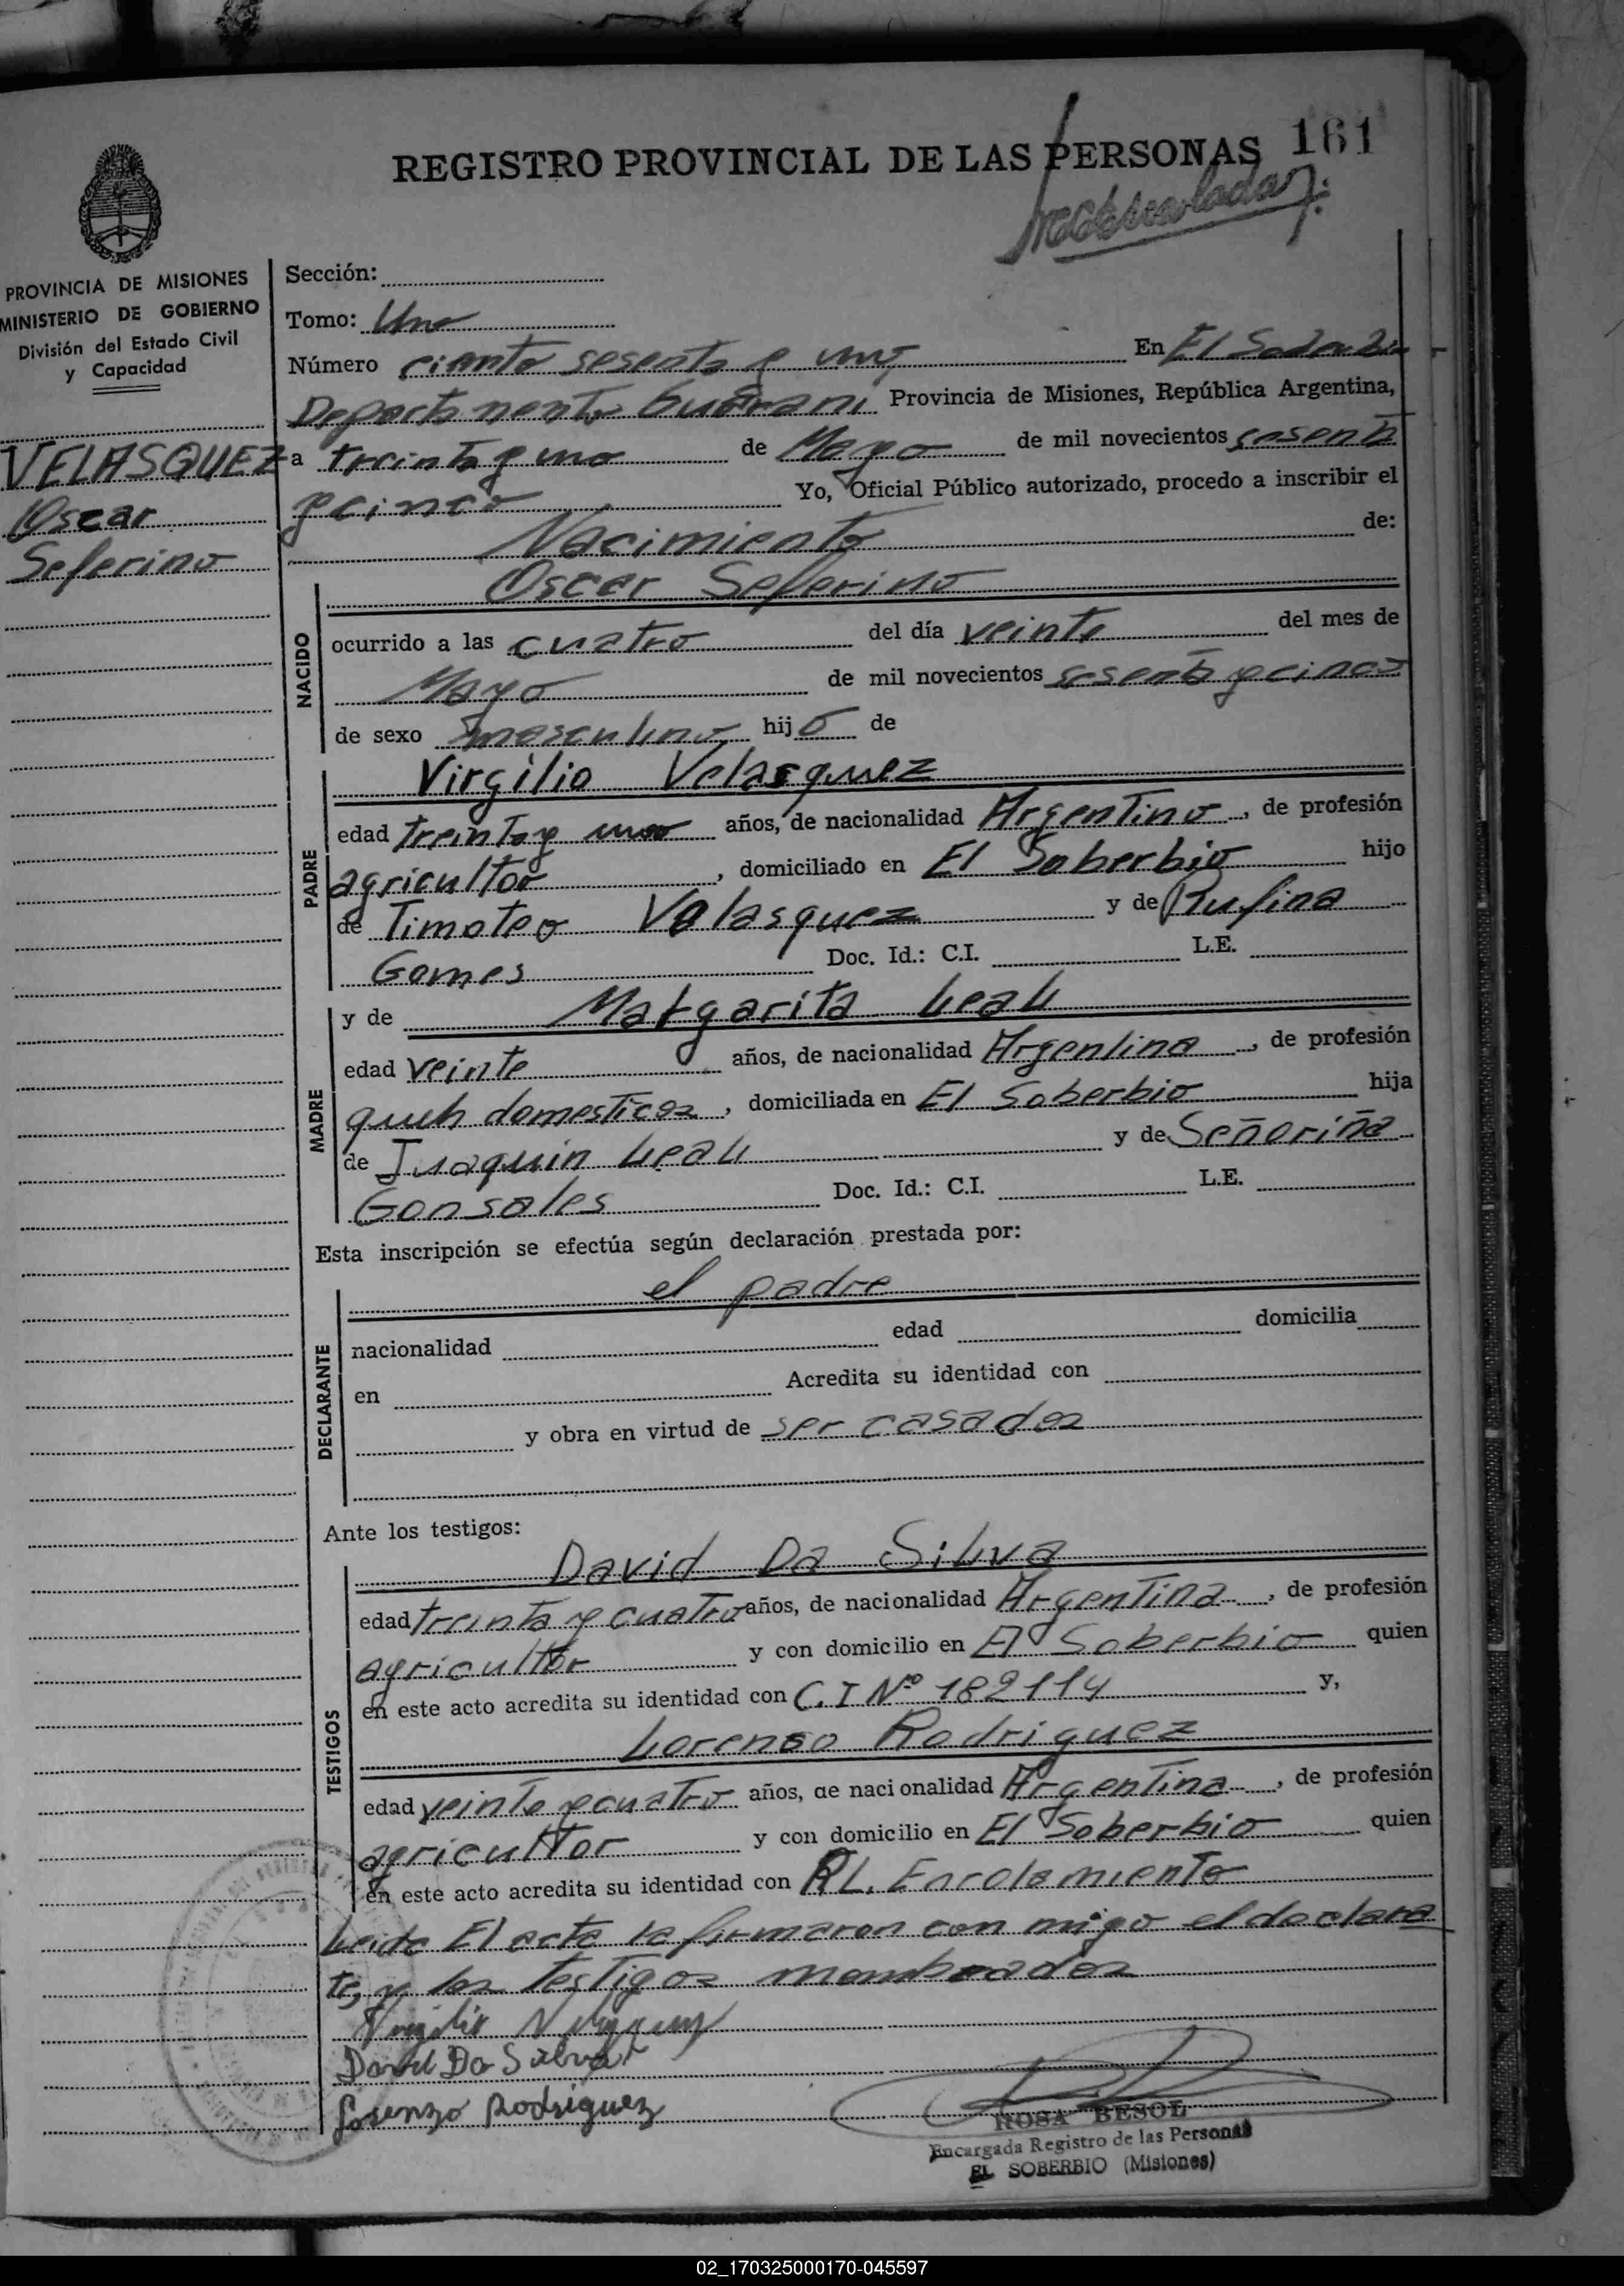 REGISTRO PROVINCIAL DE LAS PERSONAS 161
PROVINCIA DE MISIONES
MINISTERIO DE GOBIERNO
División del Estado Civil
y Capacidad
VELASQUEZ
Oscar
Seferino
Sección:
Tomo: Uno
Número ciento sesenta y uno En El Soberbio
Departamento Guarani Provincia de Misiones, República Argentina,
a treinta y uno de Mayo de mil novecientos sesenta
y cinco Yo, Oficial Público autorizado, procedo a inscribir el
Nacimiento de:
NACIDO
Oscar Seferino
ocurrido a las cuatro del día veinte del mes de
Mayo de mil novecientos sesenta y cinco
de sexo masculino hijo de
PADRE
Virgilio Velasquez
edad treinta y uno años, de nacionalidad Argentino, de profesión
agricultor, domiciliado en El Soberbio hijo
de Timoteo Velasquez y de Rufina
Gomes Doc. Id.: C.I. L.E.
MADRE
y de Margarita Leal
edad veinte años, de nacionalidad Argentina, de profesión
queh domesticos, domiciliada en El Soberbio hija
de Juaquin Leal y de Señoriña
Gonsales Doc. Id.: C.I. L.E.
Esta inscripción se efectúa según declaración prestada por:
DECLARANTE
el padre
nacionalidad edad domicilia
en Acredita su identidad con
y obra en virtud de ser casados
Ante los testigos:
TESTIGOS
David Da Silva
edad treinta y cuatro años, de nacionalidad Argentina, de profesión
agricultor y con domicilio en El Soberbio quien
en este acto acredita su identidad con C.I Nº 182114 y,
Lorenso Rodriguez
edad veinte y cuatro años, de nacionalidad Argentina, de profesión
agricultor y con domicilio en El Soberbio quien
en este acto acredita su identidad con L. Enrolamiento
Leida El acta la firmaron con migo el declara
te, y los testigos mombrados
Virgilio Velasquez
David Da Silva
Lorenzo Rodriguez
ROSA BESOL
Encargada Registro de las Personas
EL SOBERBIO (Misiones)
02_170325000170-045597